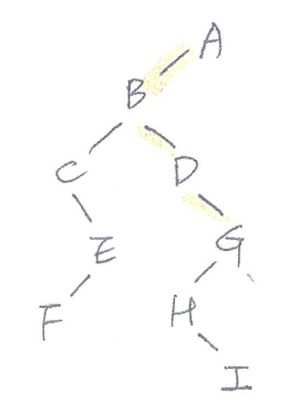 A
B
C D
E G
F H
I